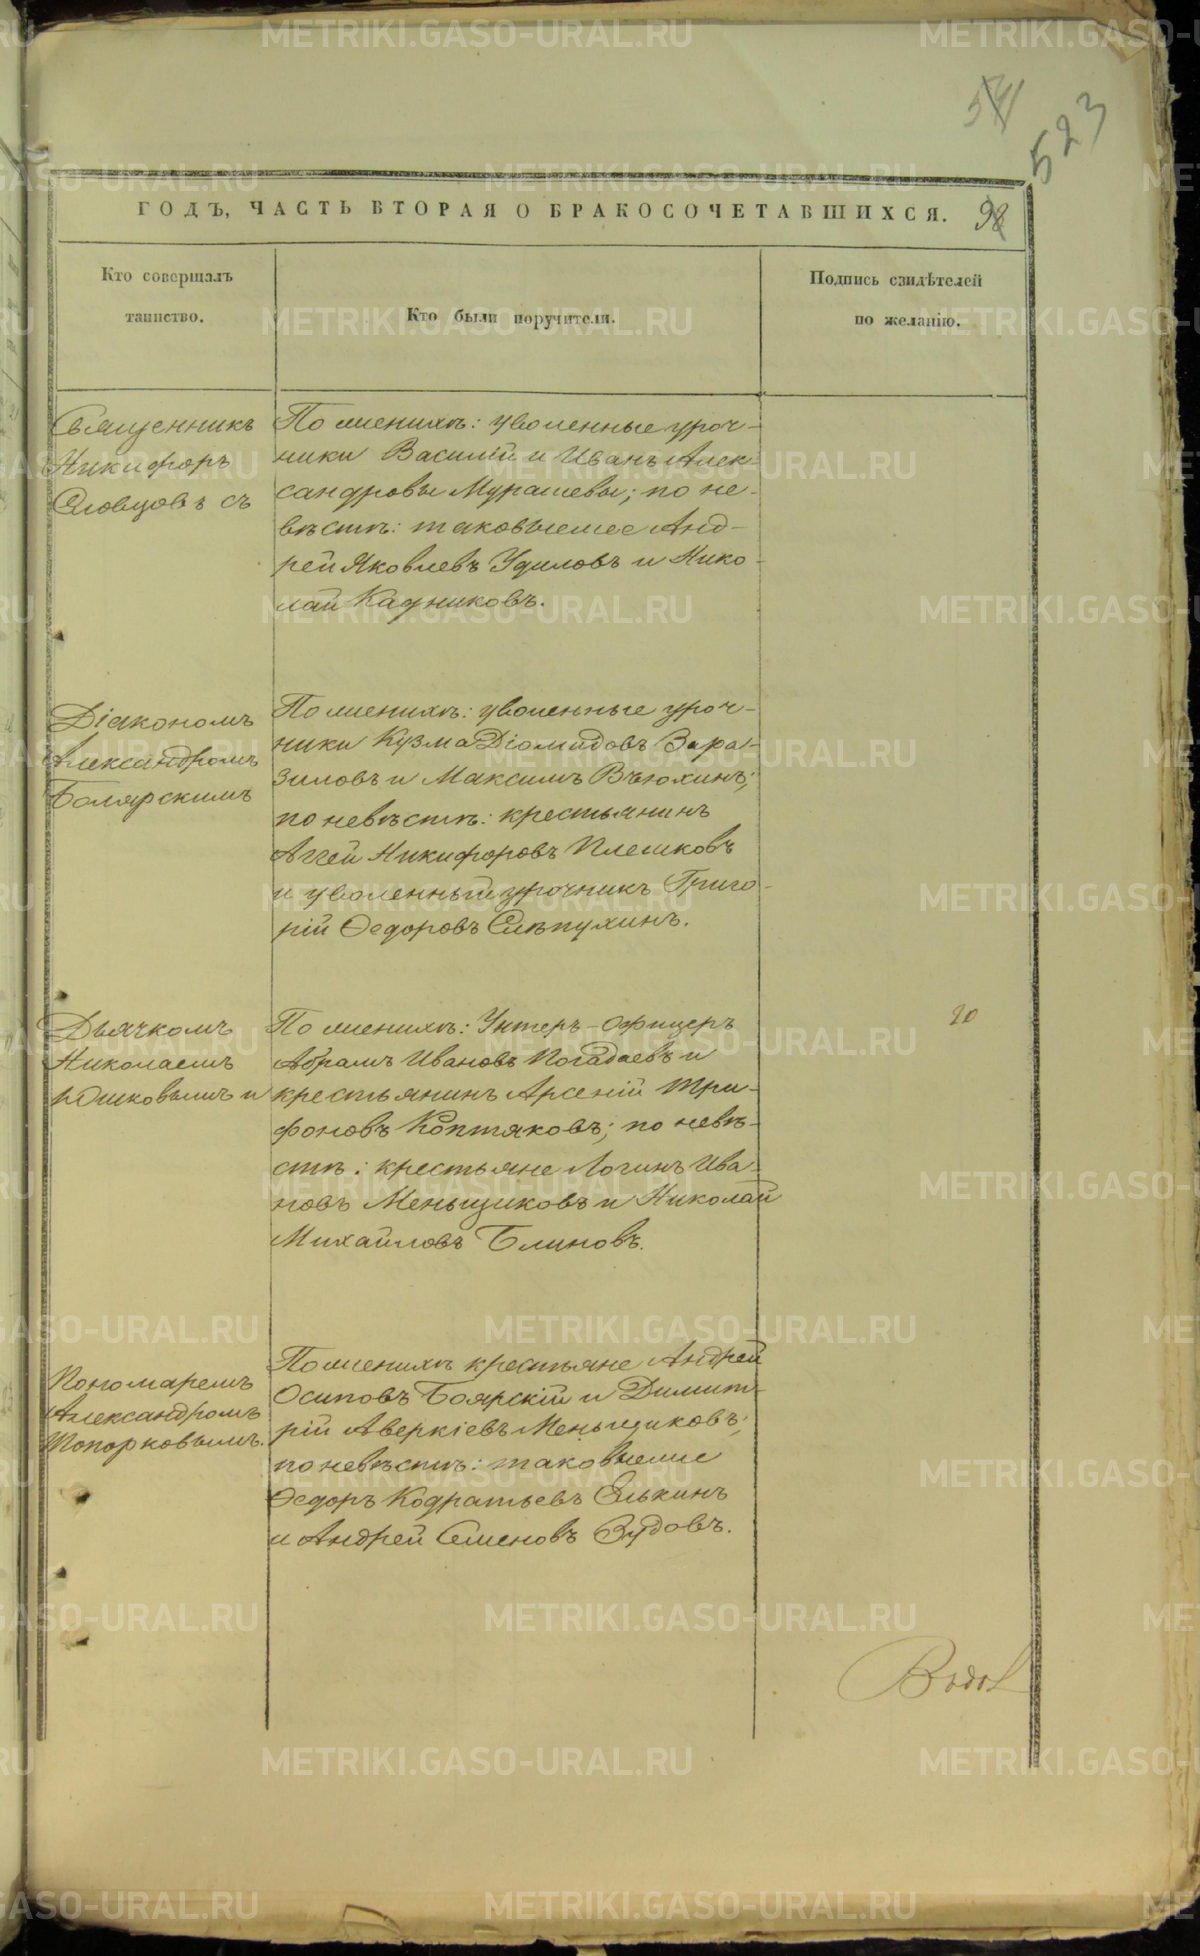 523
ГОДЪ, ЧАСТЬ ВТОРАЯ О БРАКОСОЧЕТАВШИХСЯ.
98
Кто совершалъ
таинство.
Кто были поручители.
Подпись свидѣтелей
по желанію.
Священникъ
Никифоръ
Словцовъ съ
По женихѣ: уволенные уроч-
ники Василій и Иванъ Алек-
сандровы Мурашевы; по не-
вѣстѣ: таковыеже Анд-
рей Яковлевъ Удиловъ и Нико-
лай Кадниковъ.
Діакономъ
Александромъ
Боярскимъ
По женихѣ: уволенные уроч-
ники Кузма Діомидовъ Зара-
зиловъ и Максимъ Вьюхинъ;
по невѣстѣ: крестьянинъ
Аггей Никифоровъ Плешковъ
и уволенный урочникъ Григо-
рій Ѳедоровъ Слѣпухинъ.
Дьячкомъ
Николаемъ
Юшковымъ и
По женихѣ: Унтеръ-Офицеръ
Абрамъ Ивановъ Погадаевъ и
крестьянинъ Арсеній Три-
фоновъ Коптяковъ; по невѣ-
стѣ: крестьяне Логинъ Ива-
новъ Меньщиковъ и Николай
Михайловъ Блиновъ.
20
Пономаремъ
Александромъ
Топорковымъ.
По женихѣ крестьяне Андрей
Осиповъ Боярскій и Димит-
рій Аверкіевъ Меньщиковъ;
по невѣстѣ: таковыеже
Ѳедоръ Кодратьевъ Елькинъ
и Андрей Семеновъ Зудовъ.
METRIKI.GASO-URAL.RU